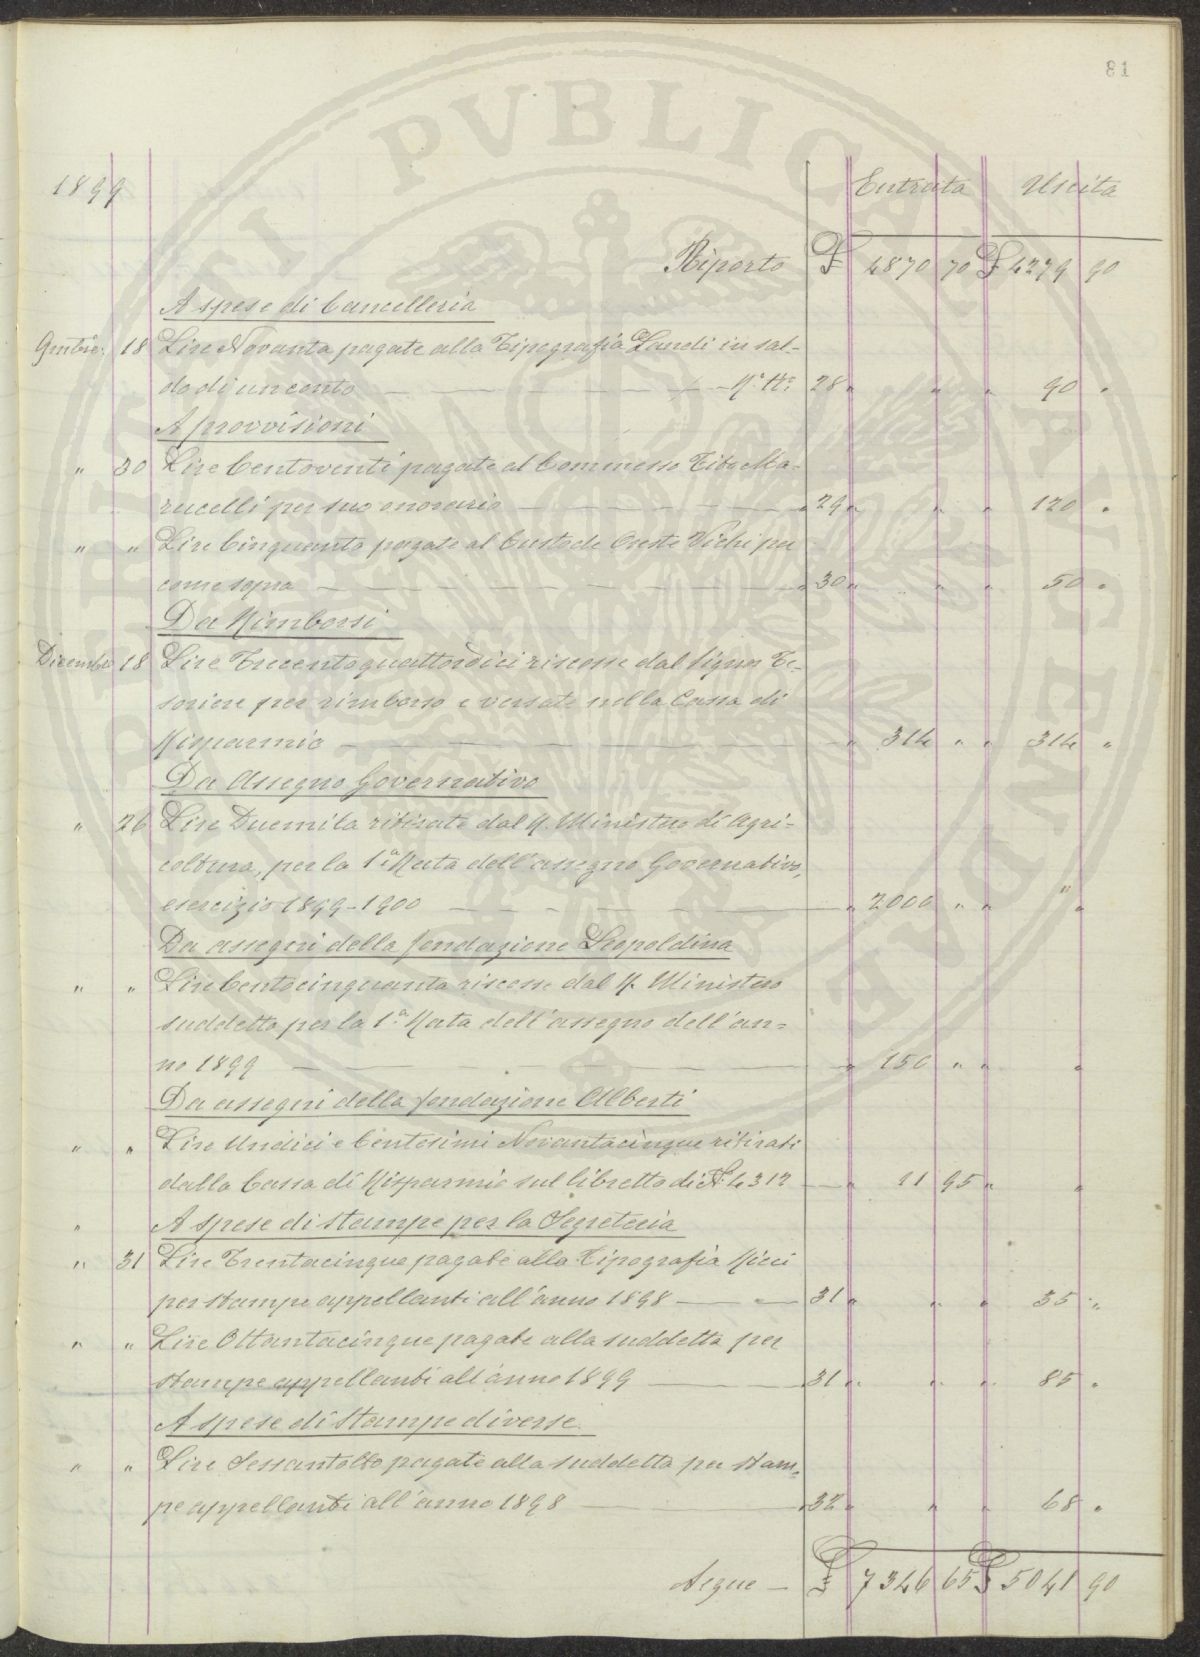 81
1899 Entrata Uscita
Riporto £ 4870 70 £ 4279 90
A spese di Cancelleria
9mbre: 18 Lire Novanta pagate alla Tipografia Landi in sal-
do di un conto — N.° tte 28 " " " 90 "
A provvisioni
" 30 Lire Centoventi pagate al Commesso Tito Ma-
rucelli per suo onorario — " 29 " " " 120 "
" " Lire Cinquanta pagate al Custode Oreste Vichi per
come sopra — " 30 " " " 50 "
Da Rimborsi
Dicembre 18 Lire Trecentoquattordici riscosse dal Signor Te-
soriere per rimborso e versate nella Cassa di
Risparmio — " 314 " " 314 "
Da Assegno Governativo
" 26 Lire Duemila ritirate dal R. Ministero di Agri-
coltura, per la 1.a Rata dell'assegno Governativo,
esercizio 1899-1900 — " 2000 " " " "
Da assegni della fondazione Leopoldina
" " Lire Centocinquanta riscosse dal R. Ministero
suddetto per la 1.a Rata dell'assegno dell'an-
no 1899 — " 150 " " "
Da assegni della fondazione Alberti
" " Lire Undici e Centesimi Novantacinque ritirati
dalla Cassa di Risparmio sul libretto di N. 4312 — " 11 95 " "
" A spese di stampe per la Segreteria
" 31 Lire Trentacinque pagate alla Tipografia Ricci
per stampe appellanti all'anno 1898 — " 31 " " " 35 "
" " Lire Ottantacinque pagate alla suddetta per
stampe appellanti all'anno 1899 — " 31 " " " 85 "
A spese di Stampe diverse
" " Lire Sessantotto pagate alla suddetta per stam-
pe appellanti all'anno 1898 — " 32 " " " 68 "
Segue — £ 7346 65 £ 5041 90